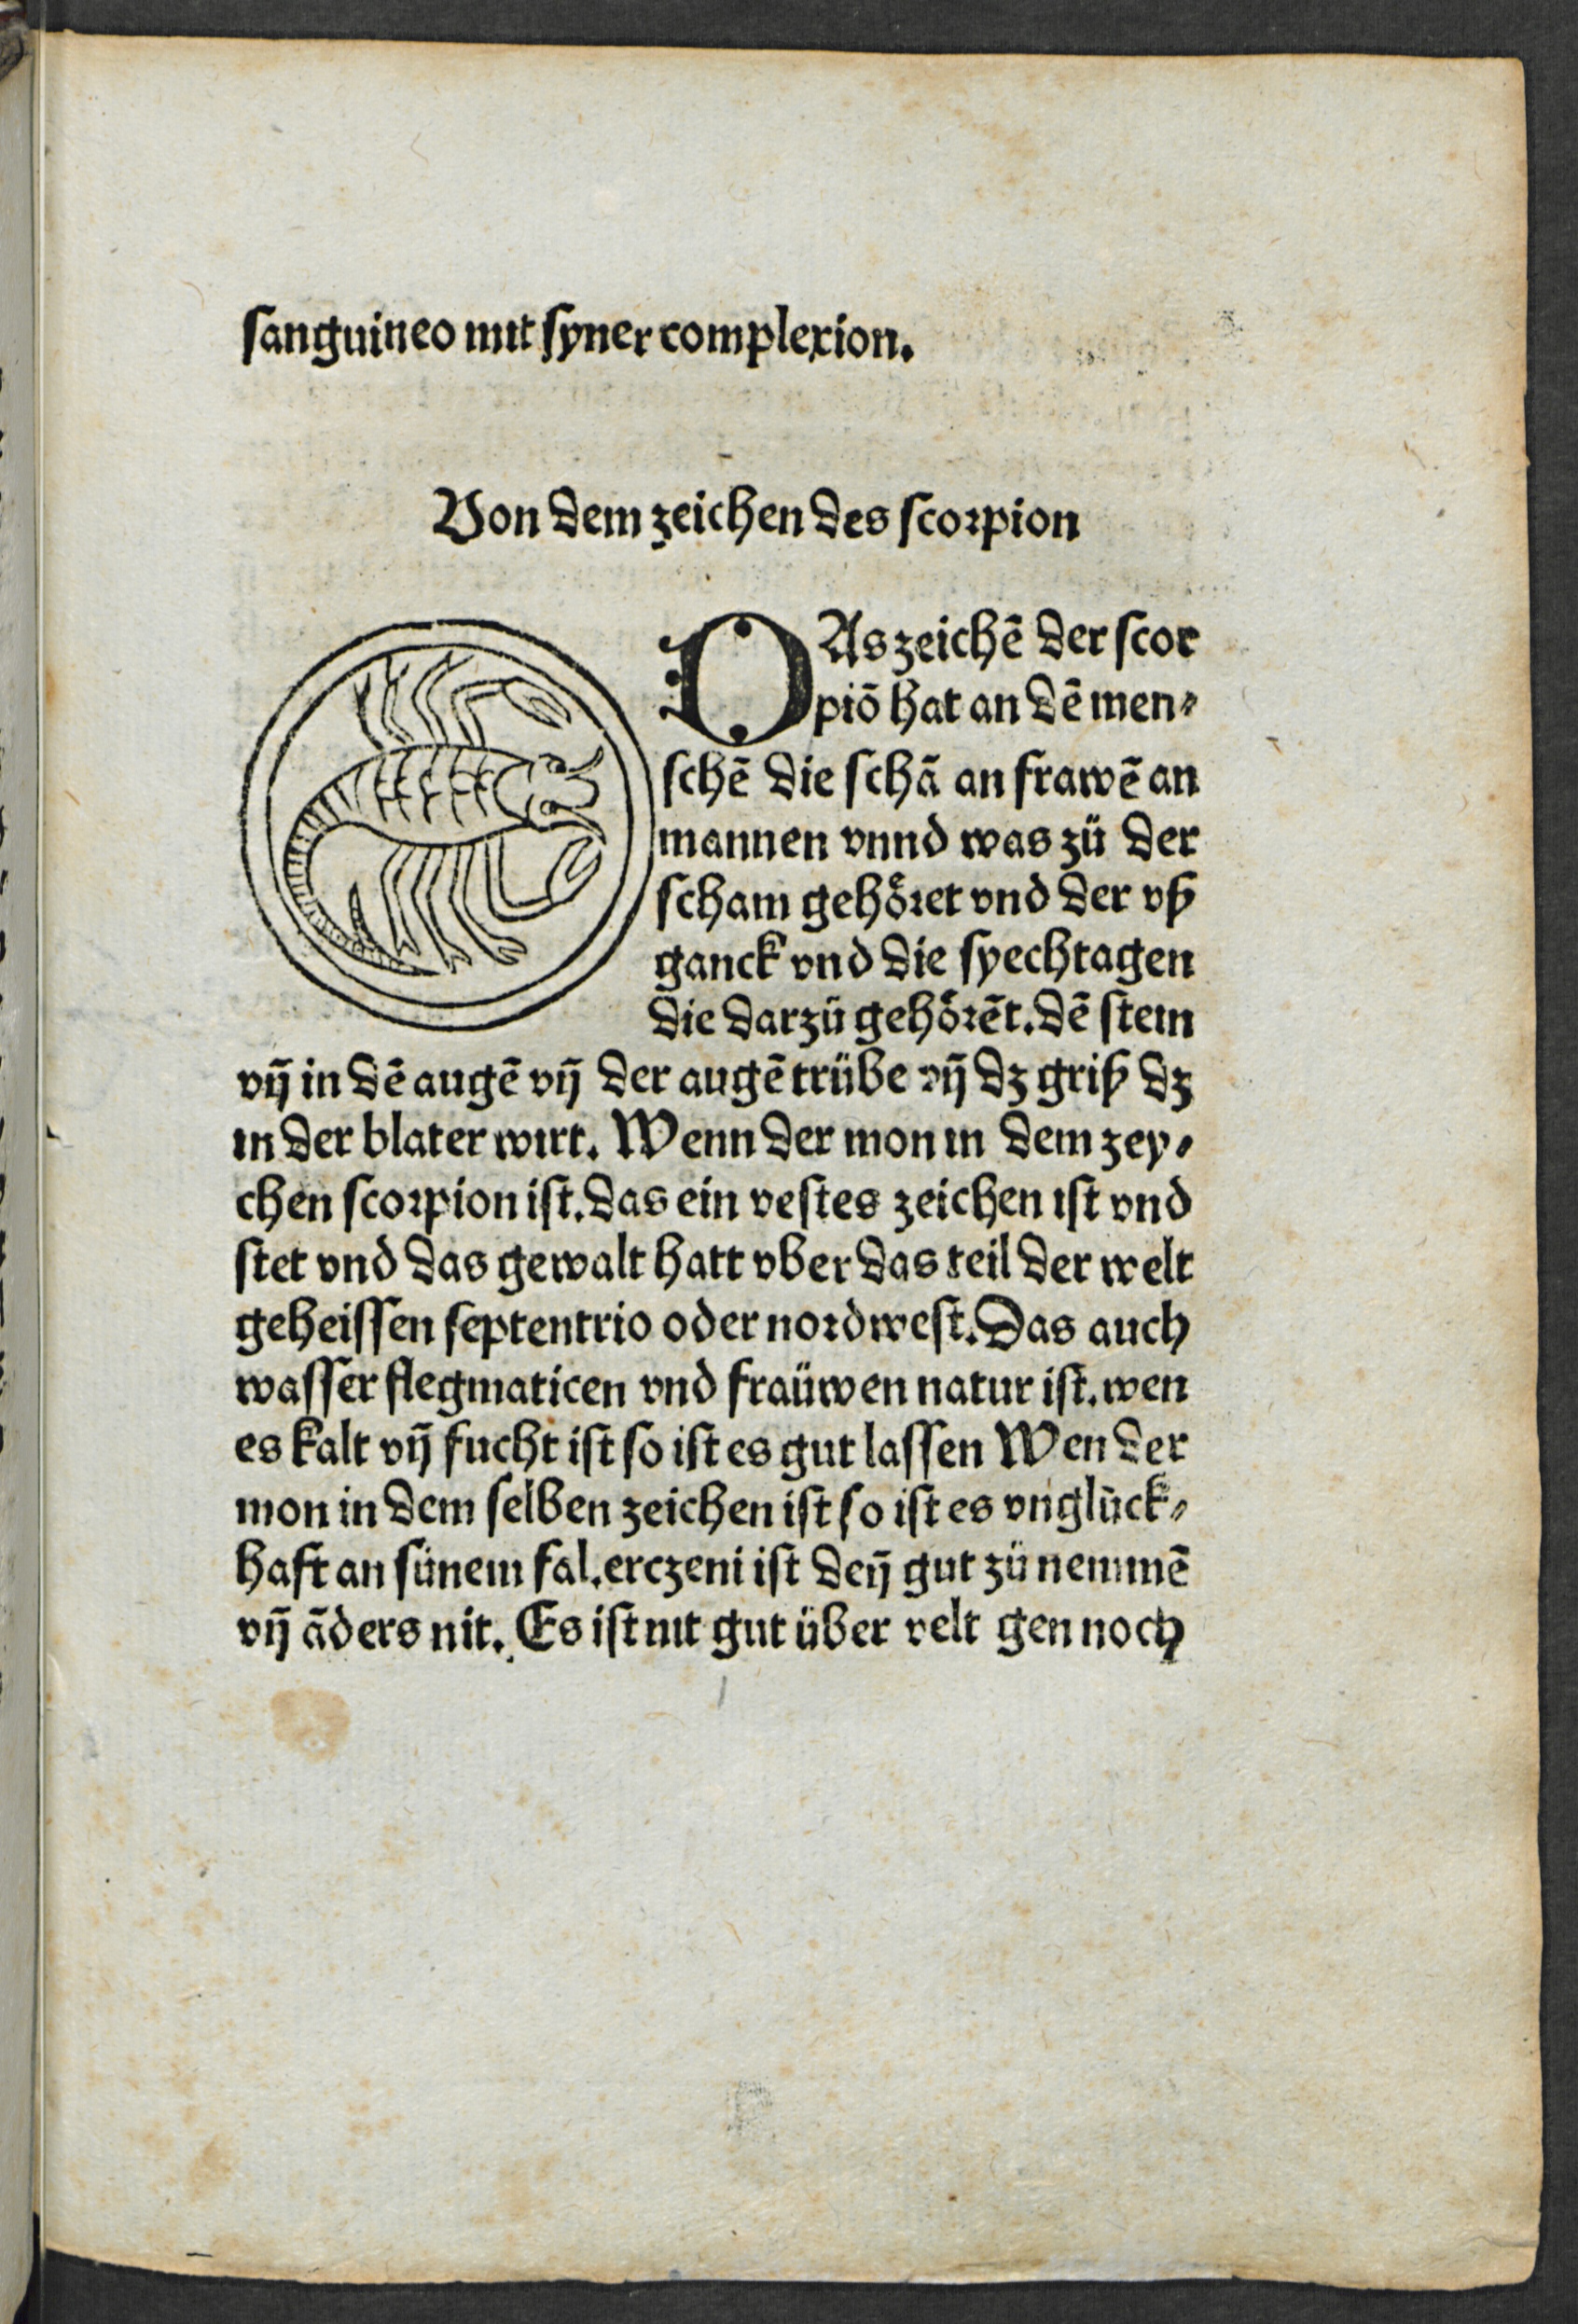 sanguineo mit syner complexion.
Von dem zeichen des scorpion
DAs zeichē der scor
piō hat an dē men⸗
schē die schā an frawē an
mannen vnnd was zü der
scham gehöret vnd der vß
ganck vnd die syechtagen
die darzü gehörēt. dē stein
vñ in dē augē vñ der augē trübe vñ dz griß dz
in der blater wirt. Wenn der mon in dem zey⸗
chen scorpion ist. das ein vestes zeichen ist vnd
stet vnd das gewalt hatt vber das teil der welt
geheissen septentrio oder nordwest. Das auch
wasser flegmaticen vnd fraüwen natur ist. wen
es kalt vñ fucht ist so ist es gut lassen Wen der
mon in dem selben zeichen ist so ist es vnglück⸗
haft an sünem fal. erczeni ist deñ gut zü nemmē
vñ āders nit. Es ist nit gut über velt gen noch